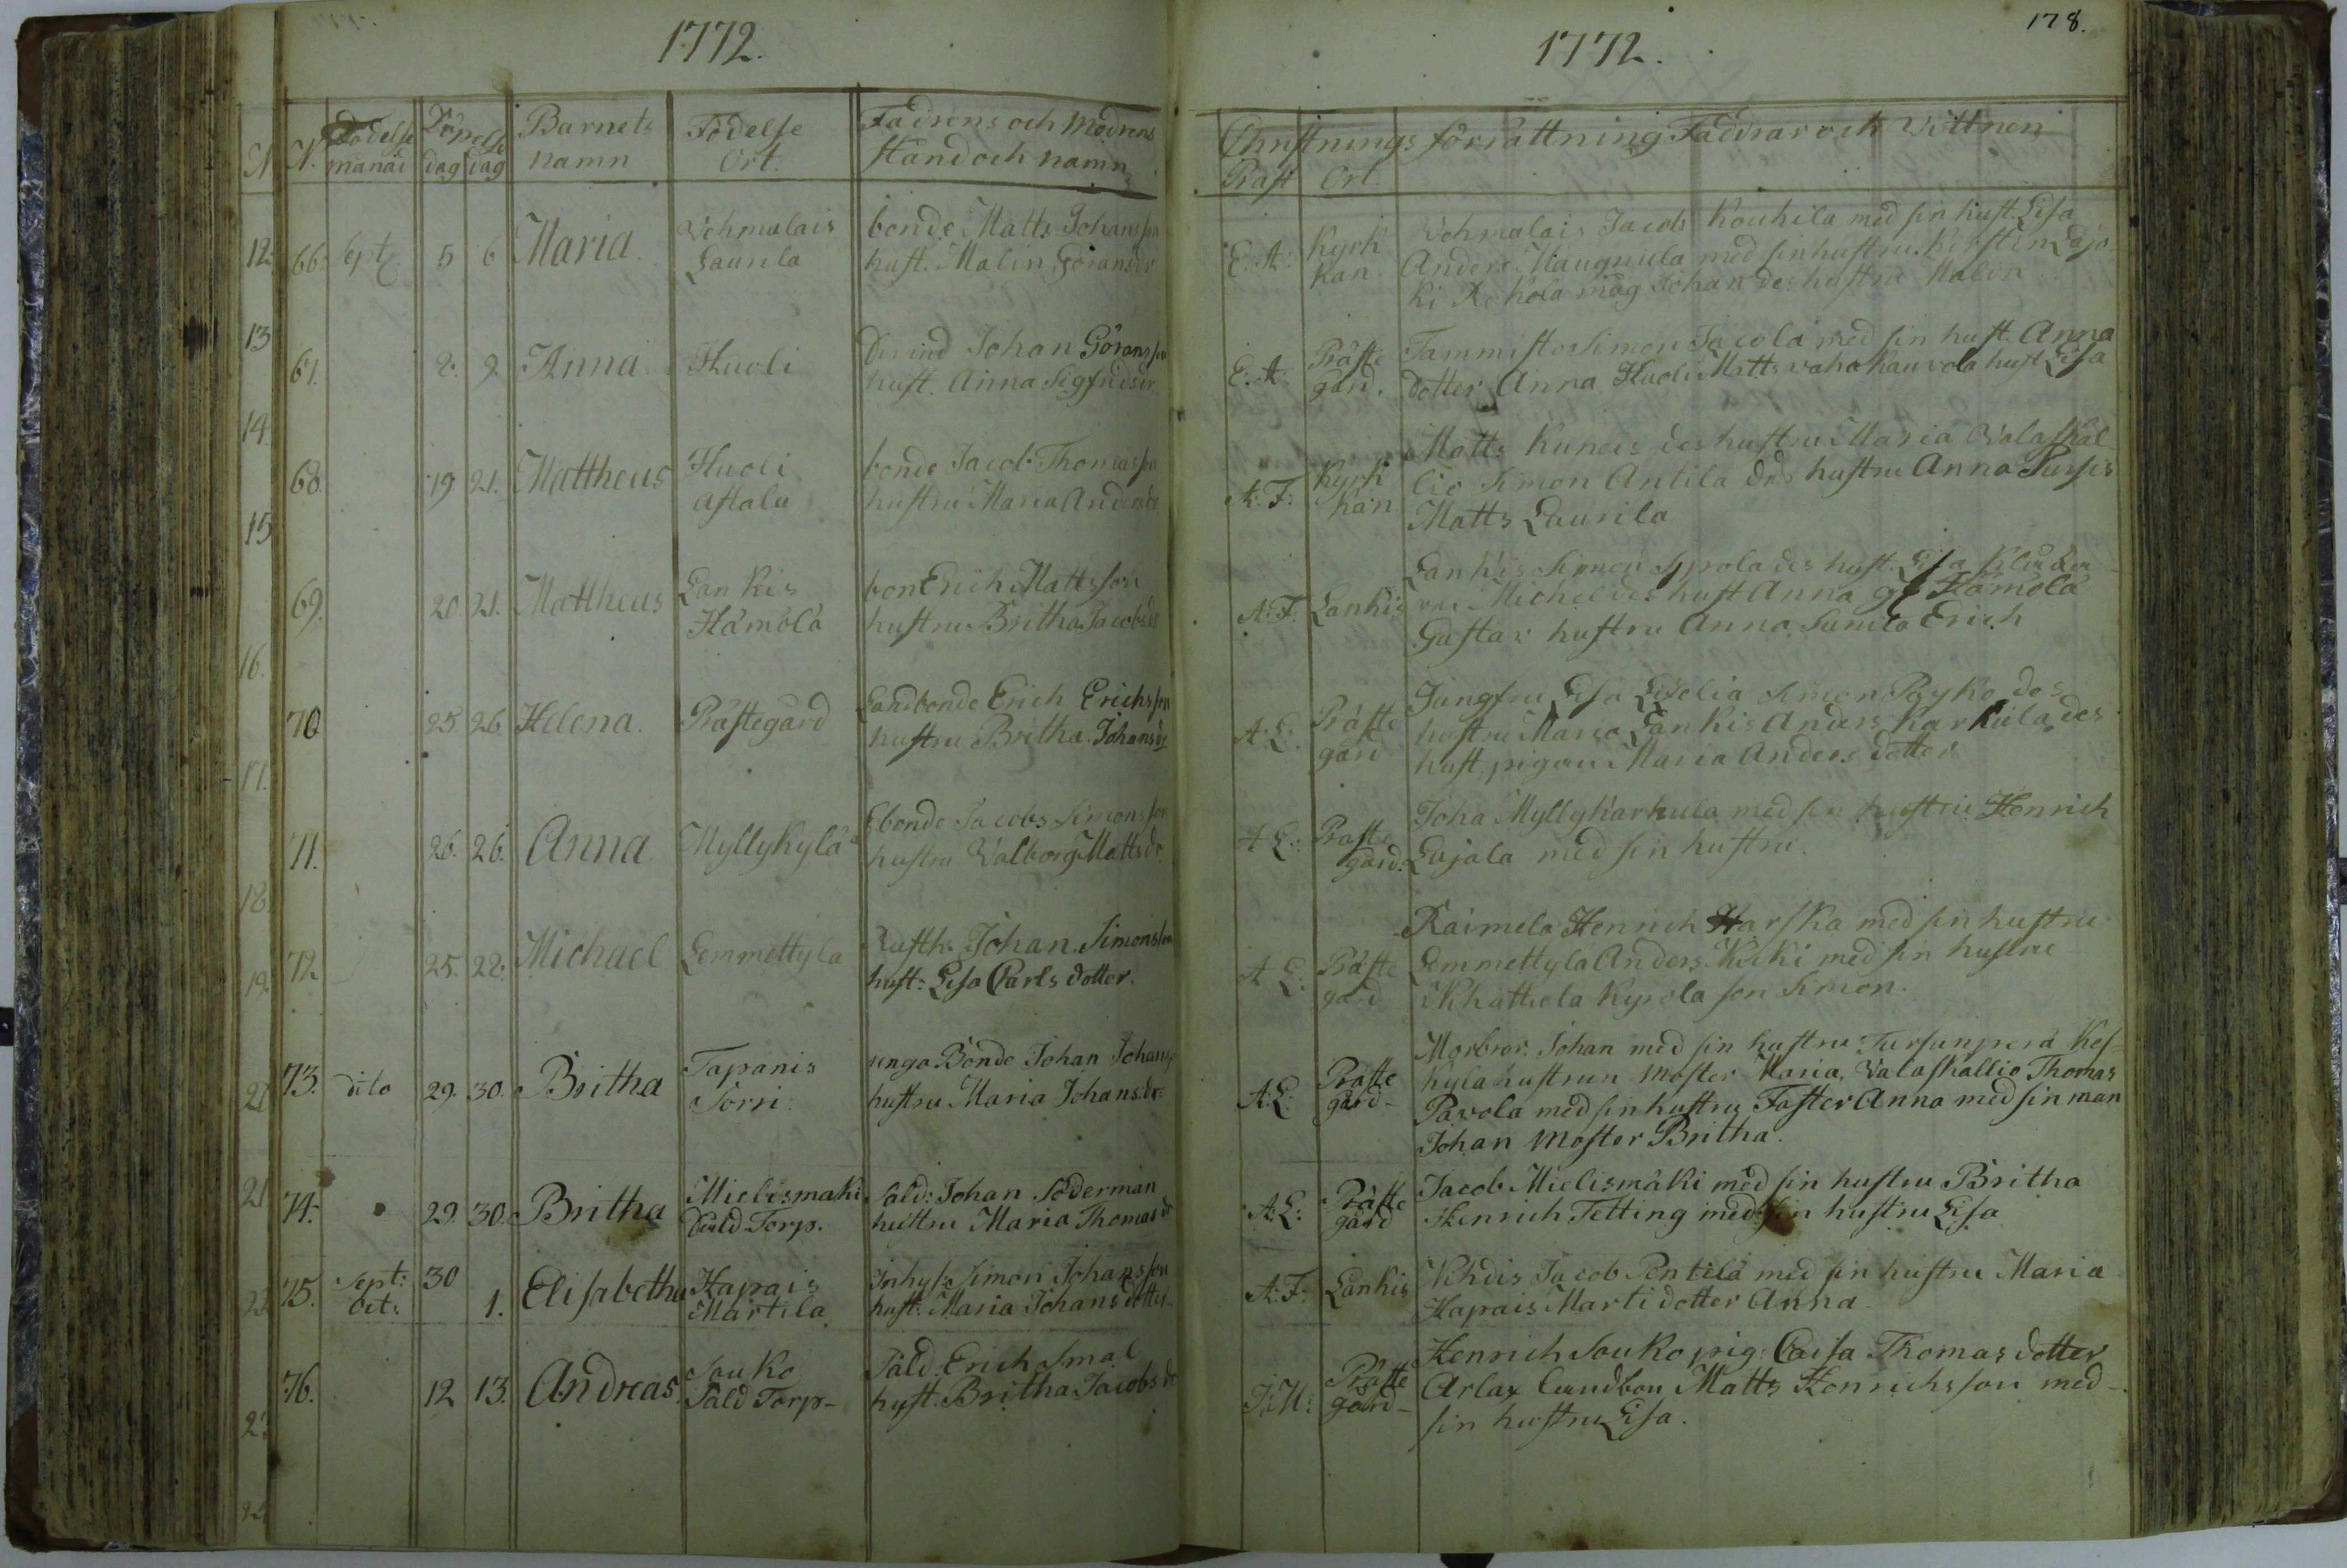 1772.
N. Födelse manad dag Döpelse dag Barnets namn Födelse Ort. Fadrens och Modrens Stand och namn
66. Sept 5 6 Maria. Vehmalais Laurila bonde Matts Johansson
hust. Malin Göransdr
67. 8. 9 Anna Huoli Johan Göransson
hust. Anna Sigfridsdr
68. 19. 21. Mattheus Huoli Astala bonde Jacob Thomasson
hustru Maria Andersdr
69. 20. 21. Mattheus Lankis Hämölä bon Erich Mattsson
hustru Britha Jacobsdr
70 25. 26. Helena. Prästegård Landbonde Erich Erichsson
hustru Britha Johansdr
71. 26. 26. Anna Myllykylä bonde Jacobs Simonsson
hustru Valborg Mattsdr
72 25. 28. Michael Lemmettyla Rusth. Johan Simonsson
hust: Lisa Carls dotter.
73. dito 29. 30. Britha Tapanis Sorri Bonde Johan Johans
hustru Maria Johansdr
74. 29. 30. Britha Mielismaki Torp. Sald: Johan Söderman
hustru Maria Thomasdr
75. Sept: 30 Oct: 1. Elisabetha Hapais Martila Inhyse Simon Johansson
hust: Maria Johans dotter
76. 12 13. Andreas Souko Sald Torp Sald: Erich Smal
hust. Britha Jacobsdr
178.
1772.
Christnings förrättning Faddrar och Vittnen
Präst Ort.
E. A. Kyrkkan Vehmalais Jacob Kouhila med sin hust. Lisa
Anders Maunula med sin hustru Kirstin Lajo
ki Rekola måg Johan des hustru Malin
E. A. Präste gård. Tammisto Simon Jacola med sin hust. Anna
dotter Anna Huoli Matts vaha Kauvola hust Lisa
A. F. Kyrk kan Matts Kuneis des hustru Maria Valaskal
lio Simon Antila des hustru Anna Pursis
Matts Laurila
A. F. Lankis Lankis Simon Sypola des hust. Lisa
Michel des hust Anna Hämölä
Gustav hustru Anna Erich
A. L. Präste gård Jungfru Lisa Simon Pöyko des
hustru Maria Lankis Anders Karkula des
hust. pigan Maria Anders dotter
A. L. Präste gård. Joha Myllykarkula med sin hustru Henrich
Lajala med sin hustru.
A. L. Präste gård Raimela Henrich Harska med sin hustru
Lemmettyla Anders Kicki med sin hustru
Kypola son Simon.
A. L. Präste gård Morbror Johan med sin hustru Tursunperä Kes
kyla hustrun Moster Maria, Valaskallio Thomas
Pavola med sin hustru Faster Anna med sin man
Johan Moster Britha.
A. L. Präste gård Jacob Mielismäki med sin hustru Britha
Henrich Tetting med sin hustru Lisa
A. F. Lankis Jacob Pentilä med sin hustru Maria
Hapais Marti dotter Anna
Präste gård Henrich Souko pig: Caisa Thomas dotter
Arlax Landbon Matts Henrichsson med
sin hustru Lisa.